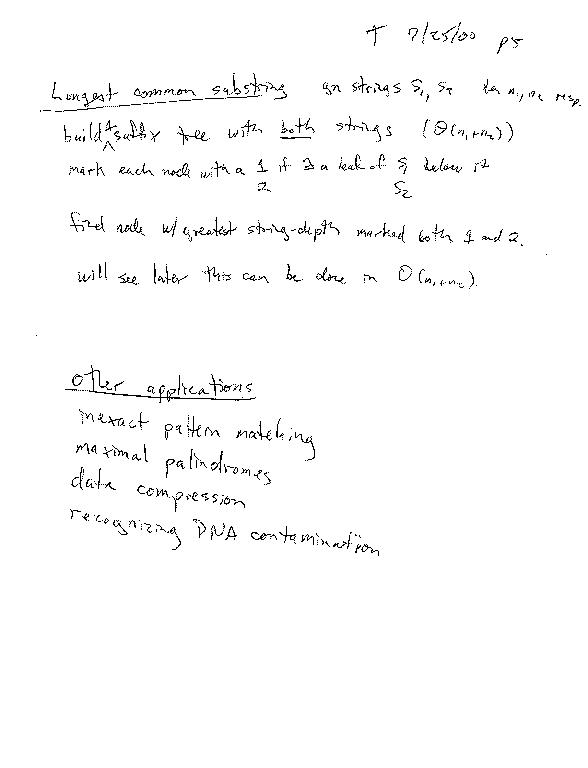 T 7/25/00 p5
Longest common substring gn strings S₁, S₂ len n₁, n₂ resp.
build a suffix tree with both strings (Θ(n₁+n₂))
mark each node with a 1 if ∃ a leaf of S₁ below it
2 S₂
find node w/ greatest string-depth marked both 1 and 2.
will see later this can be done in O(n₁+n₂).
other applications
inexact pattern matching
maximal palindromes
data compression
recognizing DNA contamination